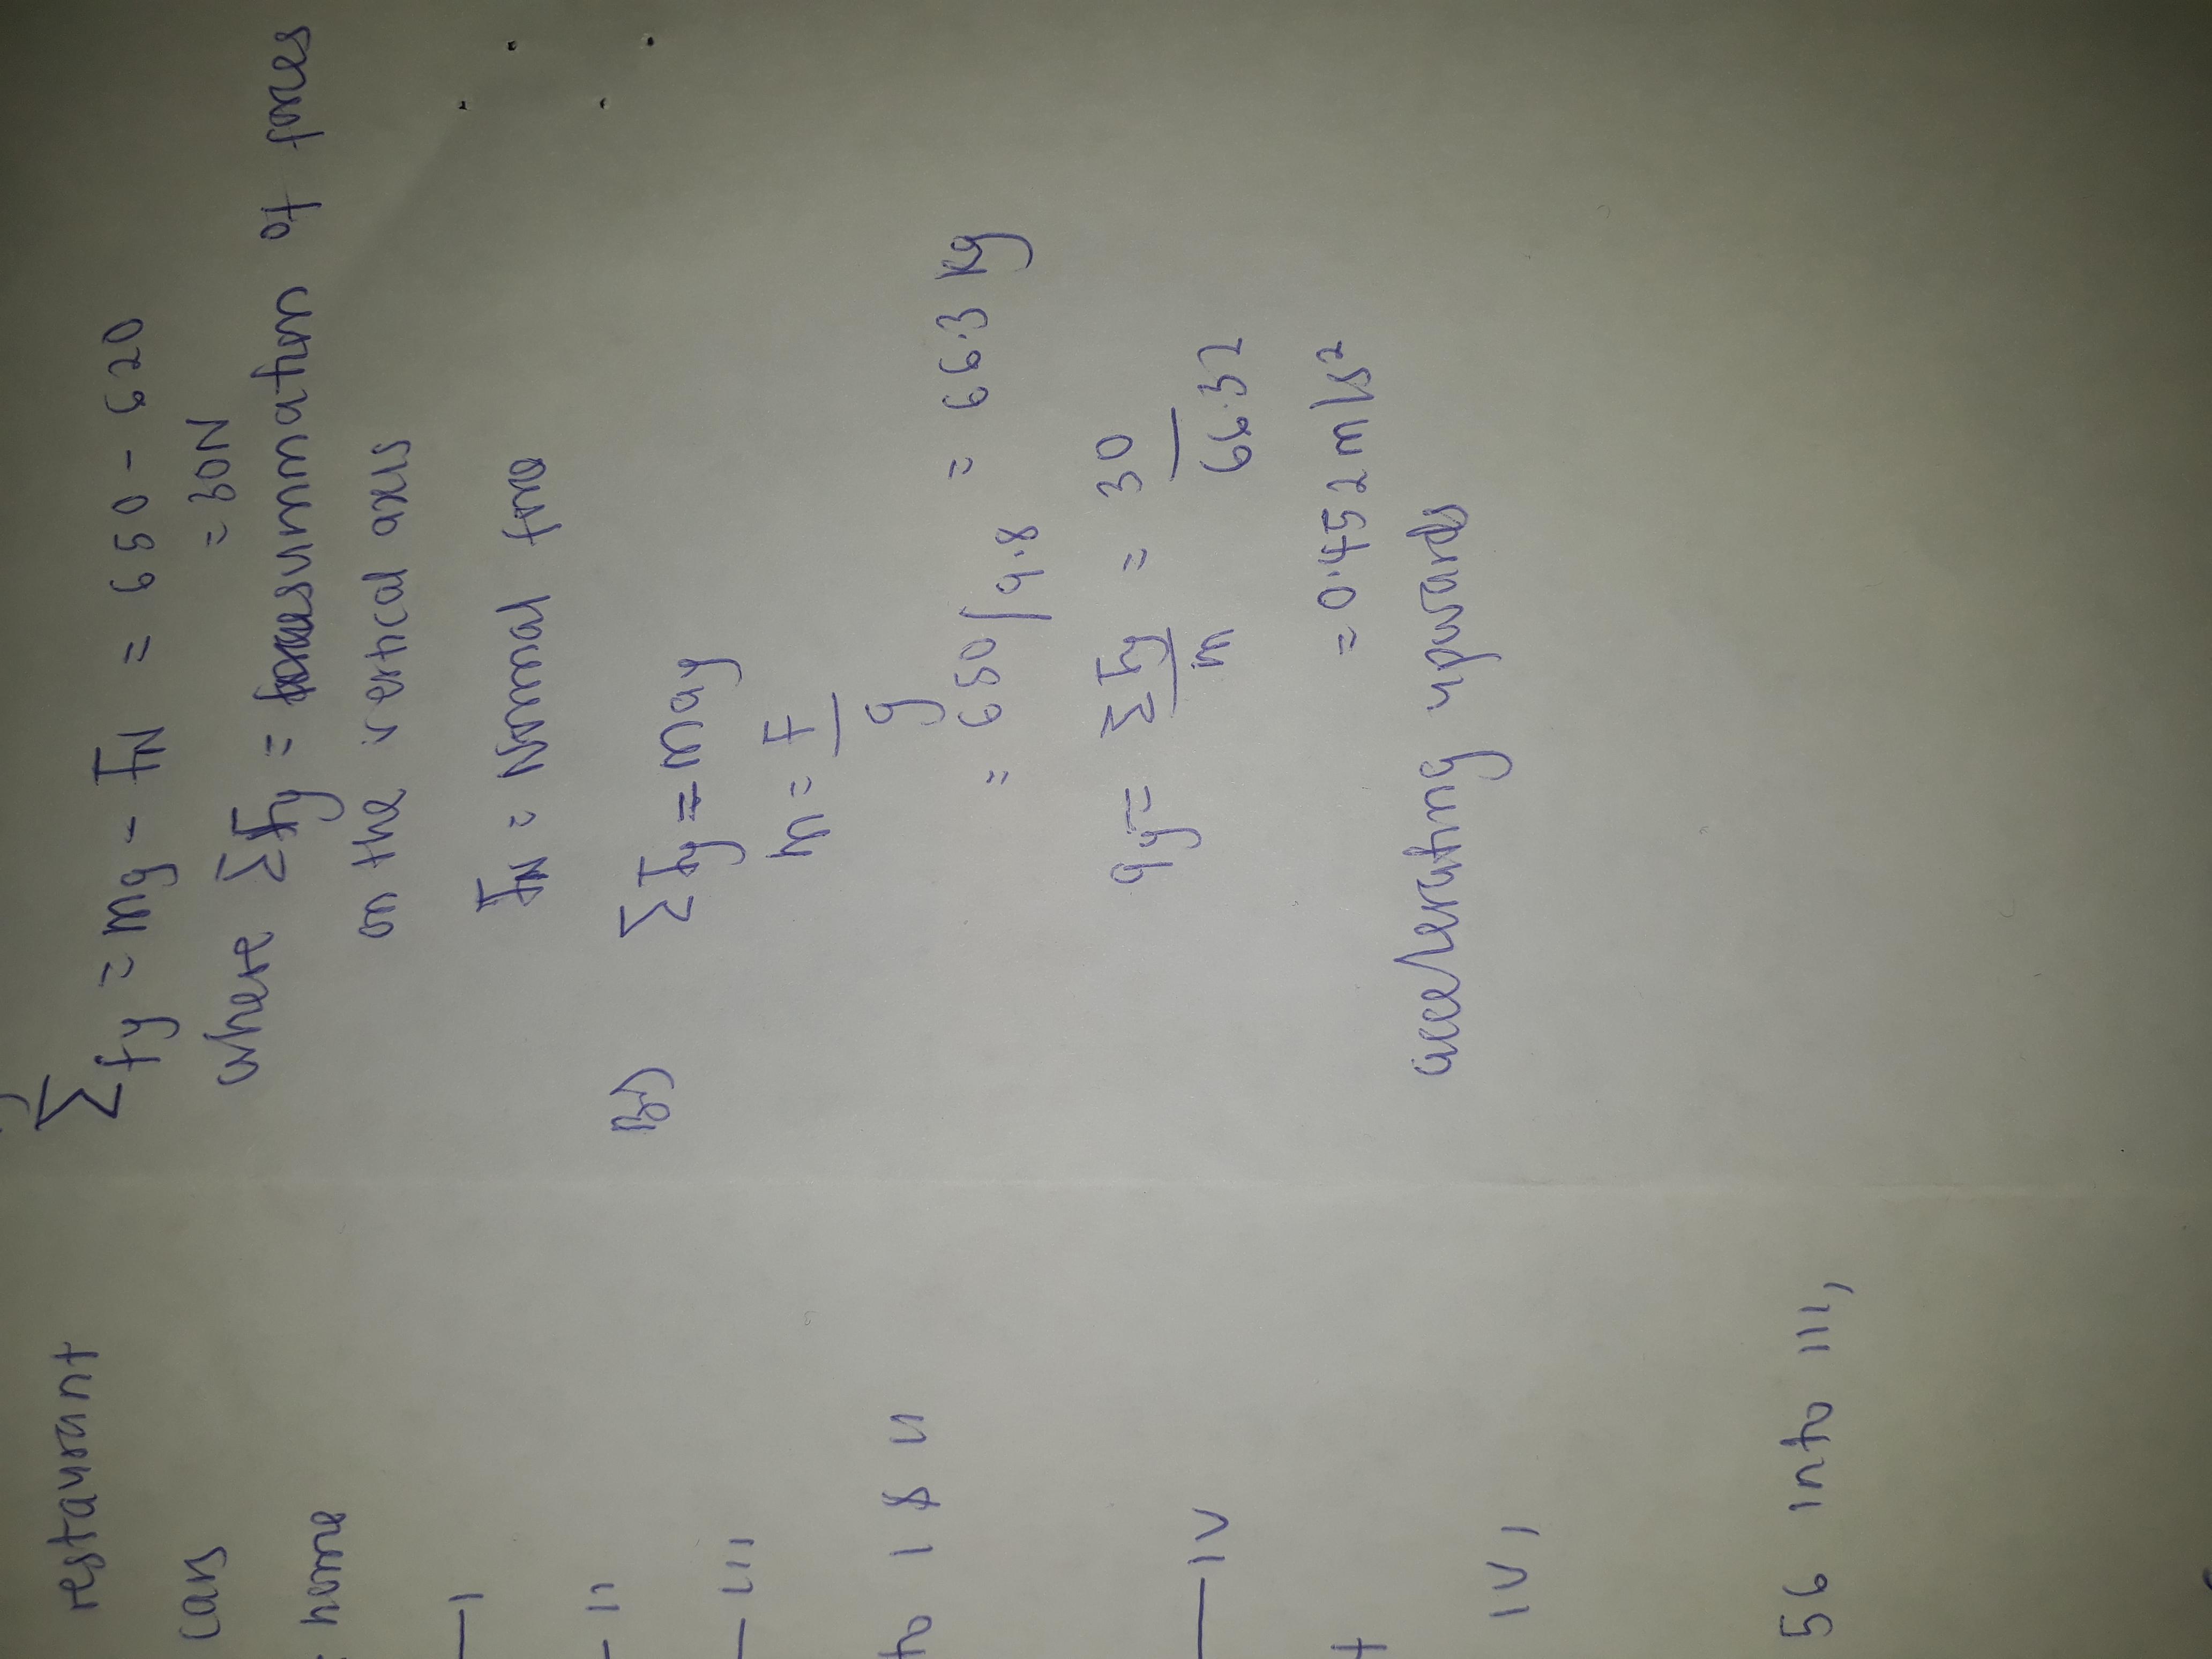 restaurant
cars
home
— I
- II
— III
to I & II
— IV
IV,
56 into III,
∑fy = mg - FN = 650 - 620
= 30N
where ∑Fy = summation of forces
on the vertical axis
FN = Normal force
B) ∑Fy = may
m = F/g
= 650/9.8 = 66.3 kg
ay = ∑Fy/m = 30/66.32
= 0.452 m/s²
accelerating upwards